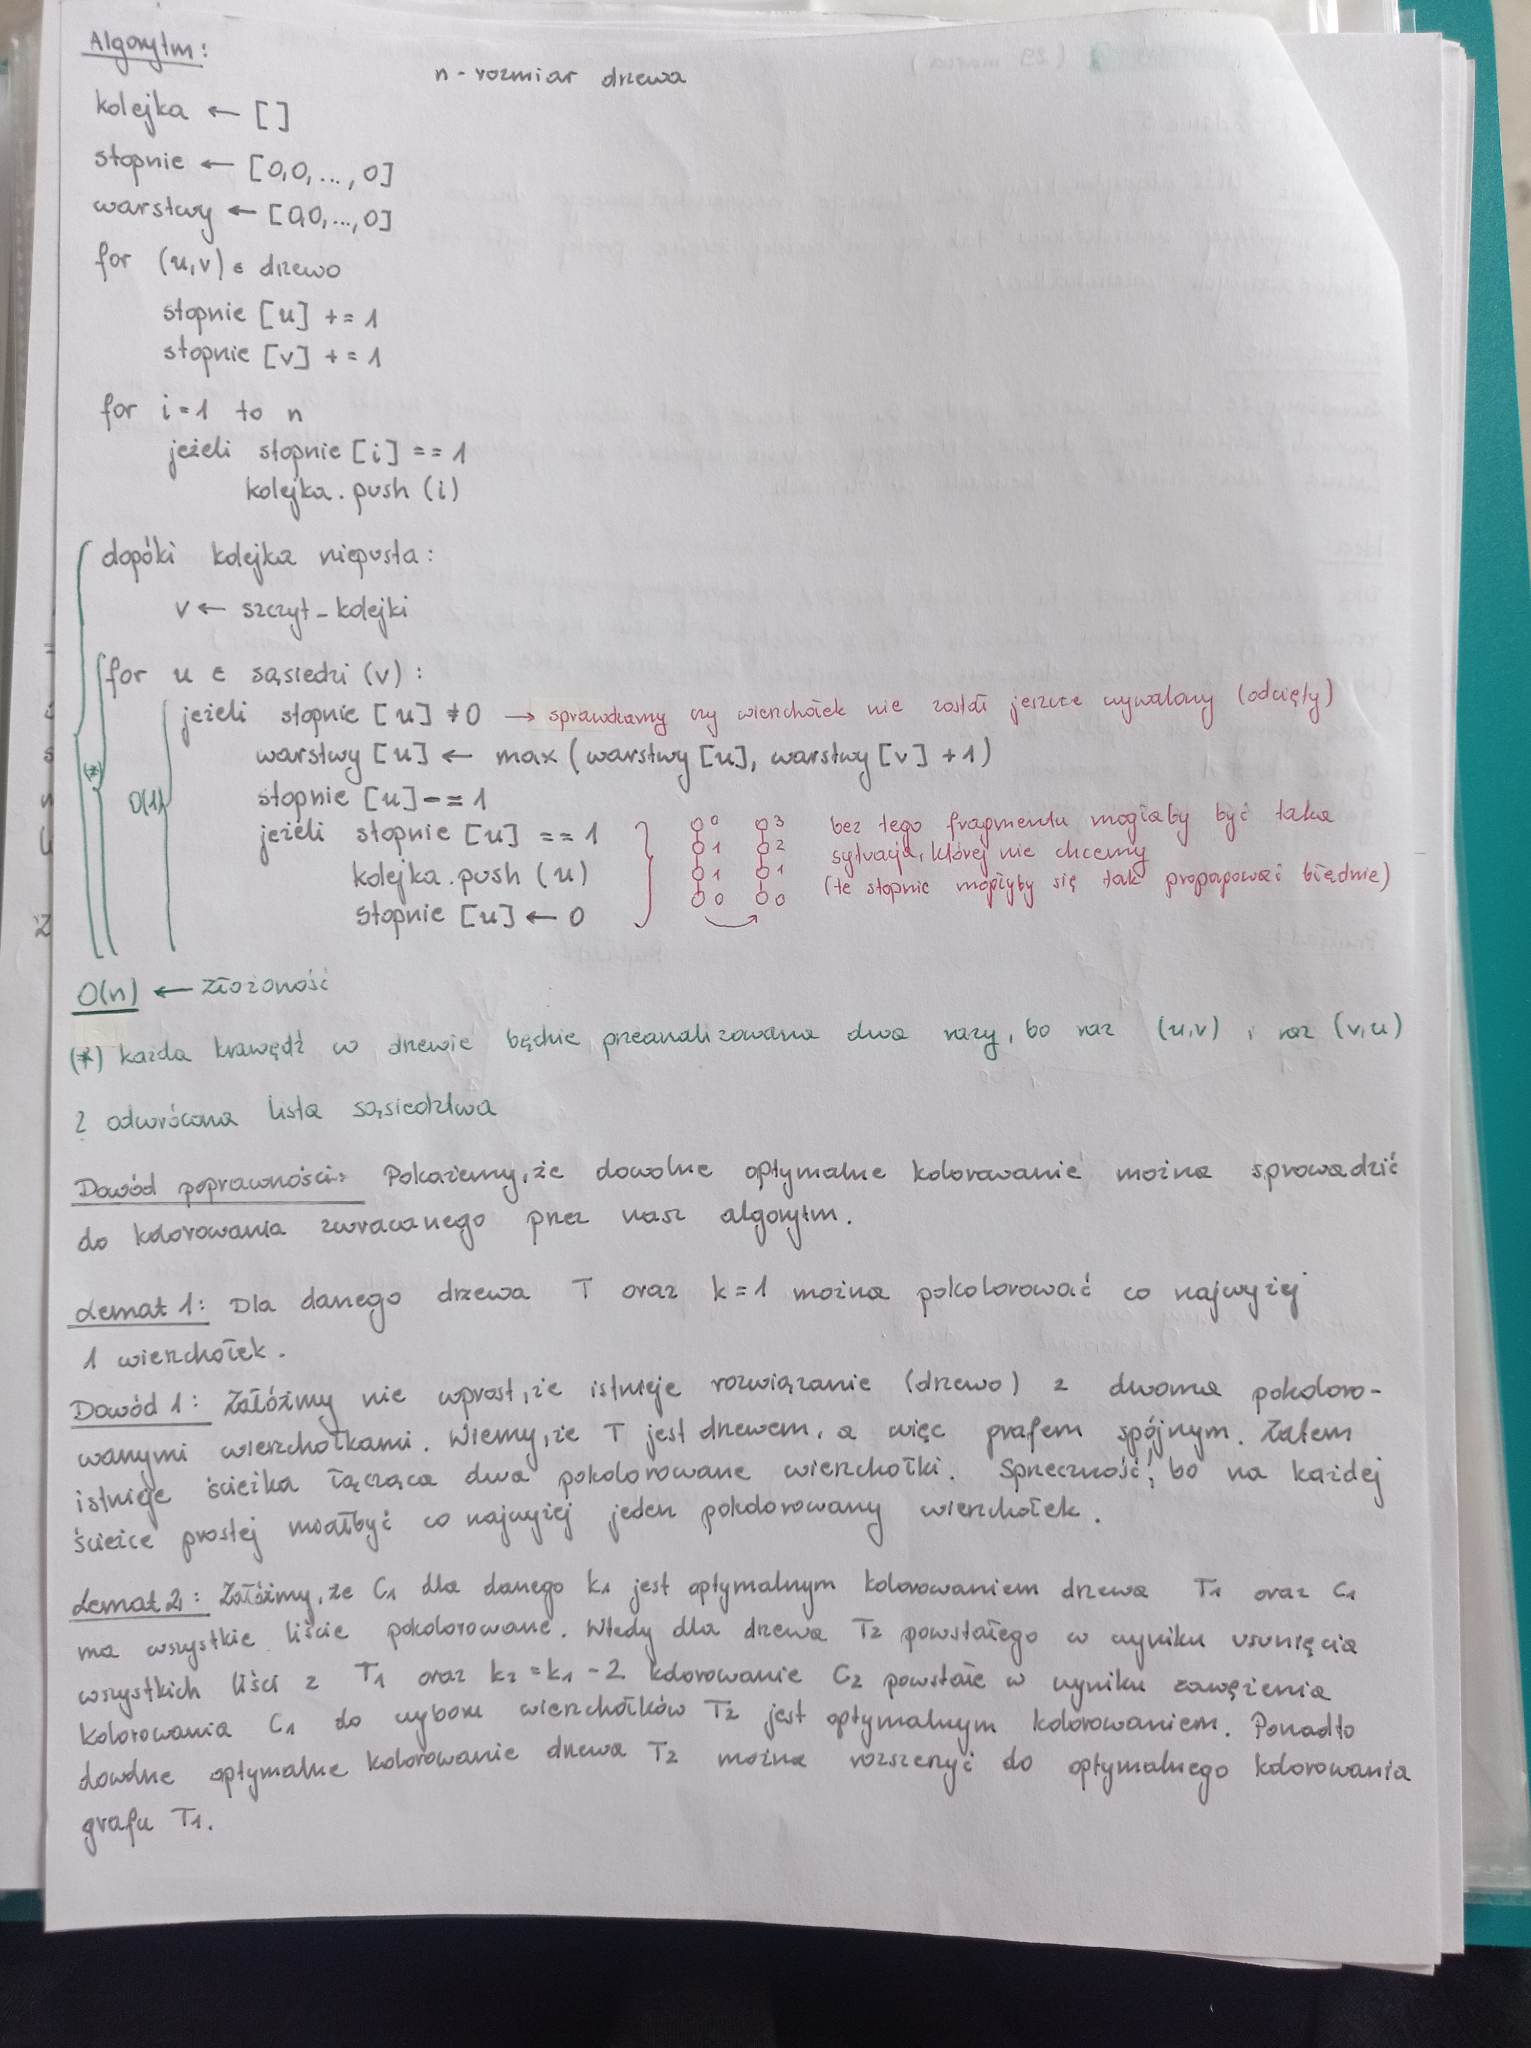 Algorytm:
n - rozmiar drzewa
kolejka ← [ ]
stopnie ← [0,0,...,0]
warstwy ← [0,0,...,0]
for (u,v) ∈ drzewo
stopnie [u] += 1
stopnie [v] += 1
for i=1 to n
jeżeli stopnie [i] == 1
kolejka.push (i)
dopóki kolejka niepusta:
v ← szczyt_kolejki
for u ∈ sąsiedzi (v) :
jeżeli stopnie [u] ≠ 0 → sprawdzamy czy wierzchołek nie został jeszcze wywalony (odcięty)
warstwy [u] ← max (warstwy [u], warstwy [v] +1)
(*)
O(1)
stopnie [u] -= 1
jeżeli stopnie [u] == 1
kolejka.push (u)
stopnie [u] ← 0
0 3
1 2
1 1
0 0
bez tego fragmentu mogłaby być taka
sytuacja, której nie chcemy
(te stopnie mogłyby się tak propagować błędnie)
O(n) ← złożoność
(*) każda krawędź w drzewie będzie przeanalizowana dwa razy, bo raz (u,v) i raz (v,u)
? odwrócona lista sąsiedztwa
Dowód poprawności: Pokażemy, że dowolne optymalne kolorowanie można sprowadzić
do kolorowania zwracanego przez nasz algorytm.
Lemat 1: Dla danego drzewa T oraz k=1 można pokolorować co najwyżej
1 wierzchołek.
Dowód 1: Załóżmy nie wprost, że istnieje rozwiązanie (drzewo) z dwoma pokoloro-
wanymi wierzchołkami. Wiemy, że T jest drzewem, a więc grafem spójnym. Zatem
istnieje ścieżka łącząca dwa pokolorowane wierzchołki. Sprzeczność, bo na każdej
ścieżce prostej miał być co najwyżej jeden pokolorowany wierzchołek.
Lemat 2: Załóżmy, że C1 dla danego k1 jest optymalnym kolorowaniem drzewa T1 oraz C1
ma wszystkie liście pokolorowane. Wtedy dla drzewa T2 powstałego w wyniku usunięcia
wszystkich liści z T1 oraz k2 = k1 - 2 kolorowanie C2 powstałe w wyniku zawężenia
kolorowania C1 do wyboru wierzchołków T2 jest optymalnym kolorowaniem. Ponadto
dowolne optymalne kolorowanie drzewa T2 można rozszerzyć do optymalnego kolorowania
grafu T1.